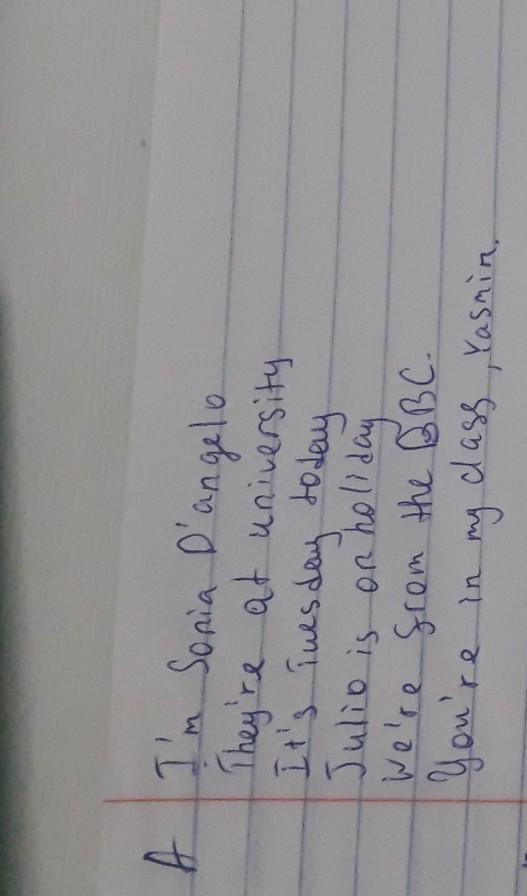 A I'm Sonia D'angelo
They're at university
It's Tuesday today
Julio is on holiday
We're from the BBC.
You're in my class, Yasmin.